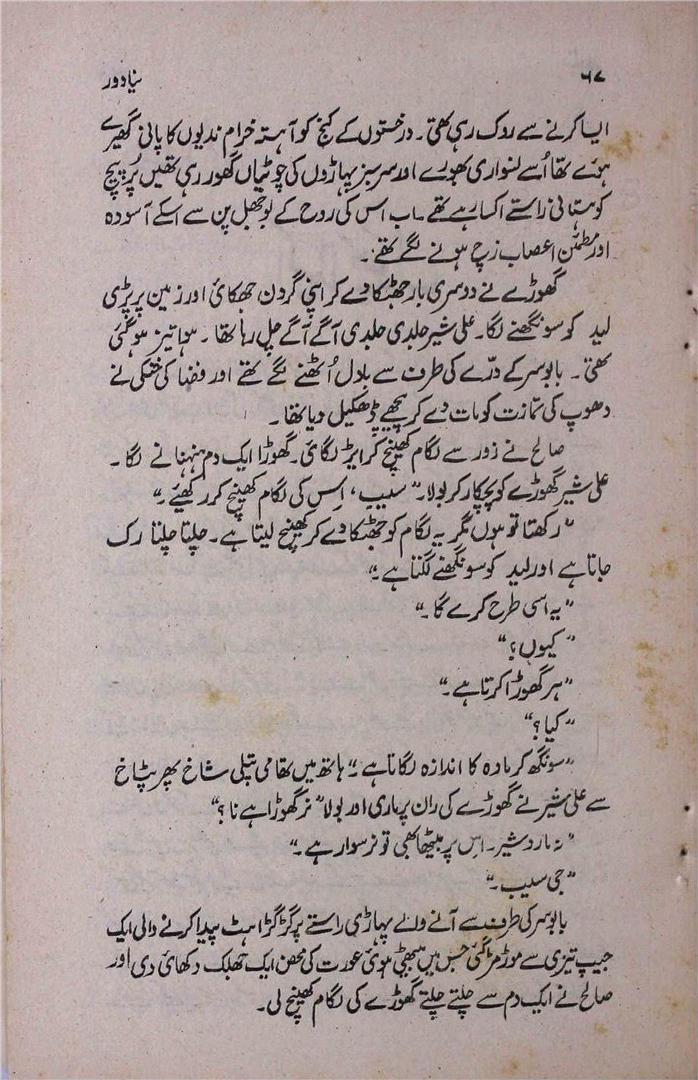 ۶۷ نیا دور
ایسا کرنے سے روک رہی تھی۔ درختوں کے کنج کو آہستہ خرام ندیوں کا پانی گھیرے
ہوئے تھا اُسے لنواری بھورے اور سرسبز پہاڑوں کی چوٹیاں گھور رہی تھیں پُرپیچ
کوہستانی راستے اکسا رہے تھے۔ اب اس کی روح کے بوجھل پن سے اسکے آسودہ
اور مطمئن اعصاب زچ ہونے لگے تھے۔
گھوڑے نے دوسری بار جھٹکا دے کر اپنی گردن جھکائی اور زمین پر پڑی
لید کو سونگھنے لگا۔ علی شیر جلدی جلدی آگے آگے چل رہا تھا۔ ہوا تیز ہو گئی
تھی۔ بابوسر کے درّے کی طرف سے بادل اُٹھنے لگے تھے اور فضا کی خنکی نے
دھوپ کی تمازت کو مات دے کر پیچھے ڈھکیل دیا تھا۔
صالح نے زور سے لگام کھینچ کر ایڑ لگائی۔ گھوڑا ایک دم ہنہنانے لگا۔
علی شیر گھوڑے کو پچکار کر بولا۔ "سیب، اِس کی لگام کھینچ کر رکھیئے۔"
"رکھتا تو ہوں مگر یہ لگام کو جھٹکا دے کر کھینچ لیتا ہے۔ چلتا چلتا رک
جاتا ہے اور لید کو سونگھنے لگتا ہے۔"
"یہ اسی طرح کرے گا۔"
"کیوں؟"
"ہر گھوڑا کرتا ہے۔"
"کیا؟"
"سونگھ کر مادہ کا اندازہ لگاتا ہے۔" ہاتھ میں تھامی پتلی شاخ پھر پٹاخ
سے علی شیر نے گھوڑے کی ران پر ماری اور بولا "نر گھوڑا ہے نا؟"
"نہ مارو شیر۔ اس پر بیٹھا بھی تو نر سوار ہے۔"
"جی سیب۔"
بابوسر کی طرف سے آنے والے پہاڑی راستے پر گڑگڑاہٹ پیدا کرنے والی ایک
جیپ تیزی سے موڑ مڑ گئی جس میں بیٹھی ہوئی عورت کی محض ایک جھلک دکھائی دی اور
صالح نے ایک دم سے چلتے چلتے گھوڑے کی لگام کھینچ لی۔